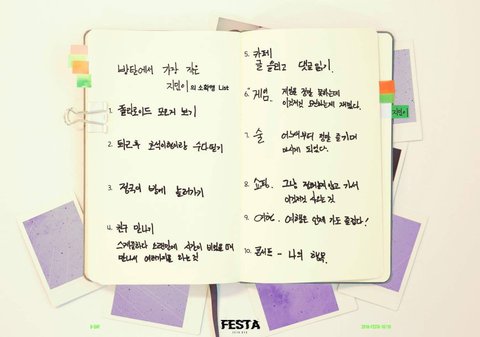 방탄에서 가장 작은
지민이의 소확행 List
1. 폴라로이드 모으기 보기
2. 퇴근 후 호석이형이랑 수다떨기
3. 정국이 방에 놀러가기
4. 친구 만나기
스케줄하다 오랜만에 시간이 비었을 때
만나서 이야기를 하는 것
5. 카페
글 올리고 댓글 읽기.
6. 게임.
게임을 정말 못하는데
이것저것 하는게 재밌다.
7. 술
어느때부터 정말 즐기며
마시게 되었다.
8. 쇼핑.
그냥 돌아다니고 가서
이것저것 사는 것
9. 여행.
여행은 언제 가도 즐겁다!
10. 콘서트 - 나의 행복.
지민이
FESTA